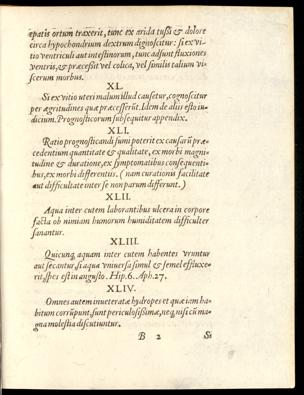 epatis ortum traxerit, tunc ex arida tussi & dolore
circa hypochondrium dextrum dignoscitur: si ex vi-
tio ventriculi aut intestinorum, tunc adsunt fluxiones
ventris, & præcessit vel colica, vel similis talium vi-
scerum morbus.
XL.
Si ex vitio uteri malum illud causetur, cognoscitur
per ægritudines quæ præcesserūt. Idem de aliis esto iu-
dicium. Prognosticorum subsequitur appendix.
XLI.
Ratio prognosticandi sumi poterit ex causarū præ-
cedentium quantitate & qualitate, ex morbi magni-
tudine & duratione, ex symptomatibus consequenti-
bus, ex morbi differentiis. ( nam curationis facilitate
aut difficultate inter se non parum differunt. )
XLII.
Aqua inter cutem laborantibus ulcera in corpore
facta ob nimiam humorum humiditatem difficulter
sanantur.
XLIII.
Quicunq; aquam inter cutem habentes vruntur
aut secantur, si aqua vniuersa simul & semel effluxe-
rit, spes est in angusto. Hip. 6. Aph. 27.
XLIV.
Omnes autem inueteratæ hydropes et quæ iam ha-
bitum corrūpunt, sunt periculosissimæ, neq; nisi cū ma-
gna molestia discutiuntur.
B 2 Si